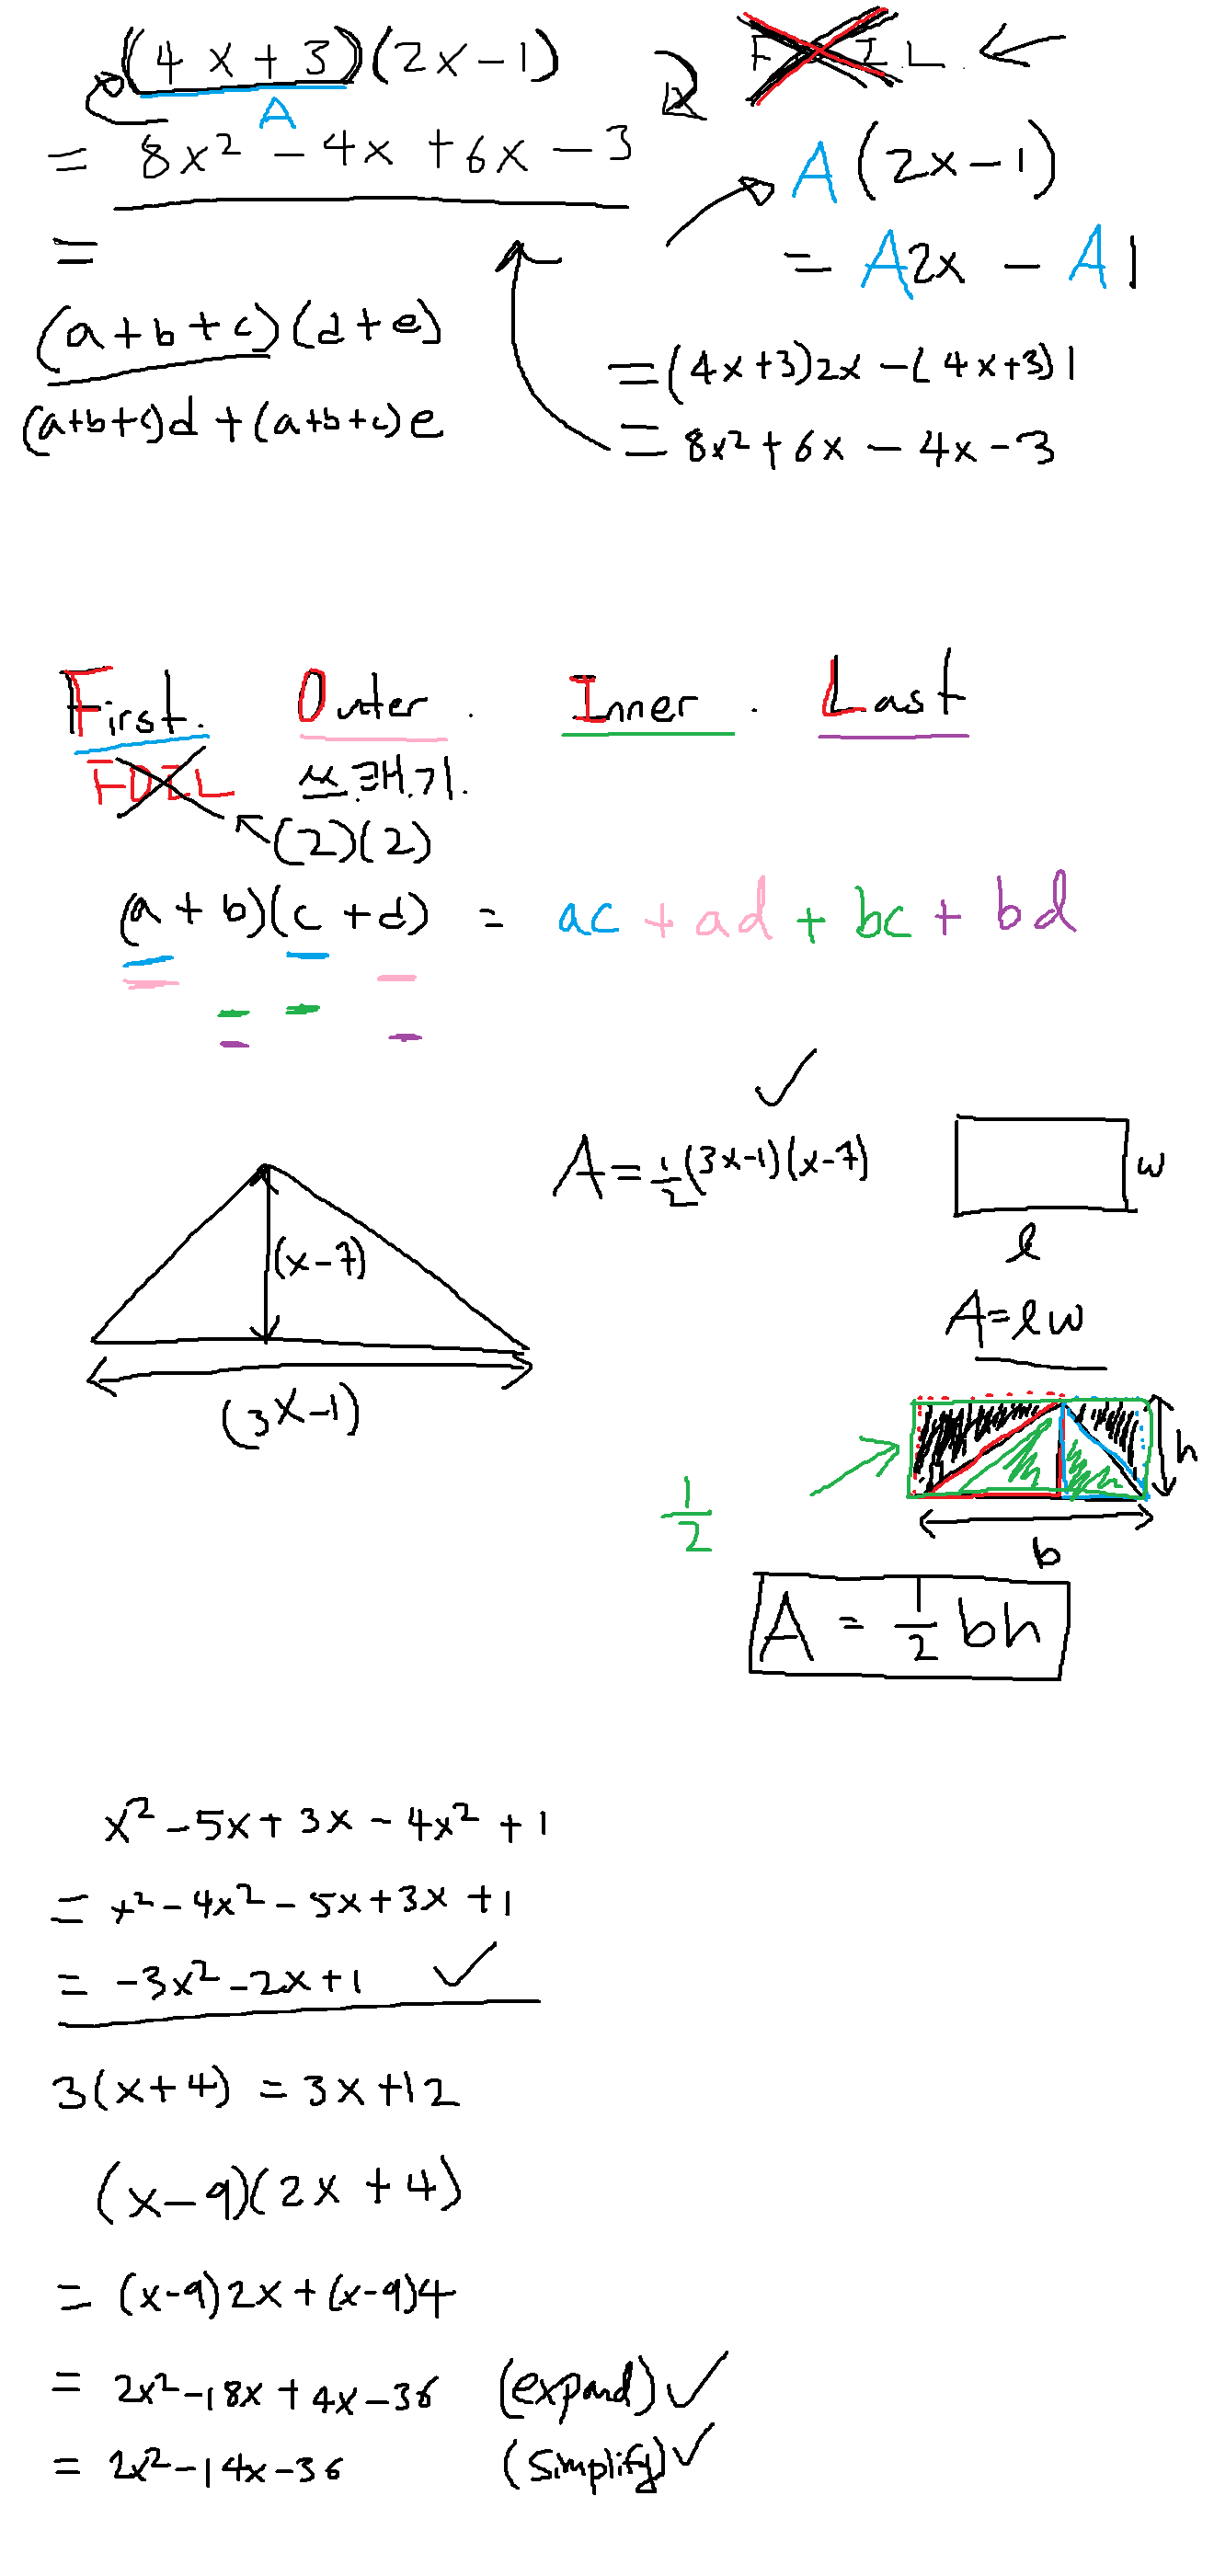 (4x+3)(2x-1)
A
= 8x² - 4x + 6x - 3
=
(a+b+c)(d+e)
(a+b+c)d + (a+b+c)e
F I L
A(2x-1)
= A2x - A1
= (4x+3)2x - (4x+3)1
= 8x² + 6x - 4x - 3
First. Outer. Inner. Last
FOIL
(2)(2)
(a+b)(c+d) = ac + ad + bc + bd
(x-7)
(3x-1)
A = 1/2 (3x-1)(x-7)
w
l
A = lw
h
b
1/2
A = 1/2 bh
x² - 5x + 3x - 4x² + 1
= x² - 4x² - 5x + 3x + 1
= -3x² - 2x + 1
3(x+4) = 3x+12
(x-9)(2x+4)
= (x-9)2x + (x-9)4
= 2x² - 18x + 4x - 36 (expand)
= 2x² - 14x - 36 (simplify)